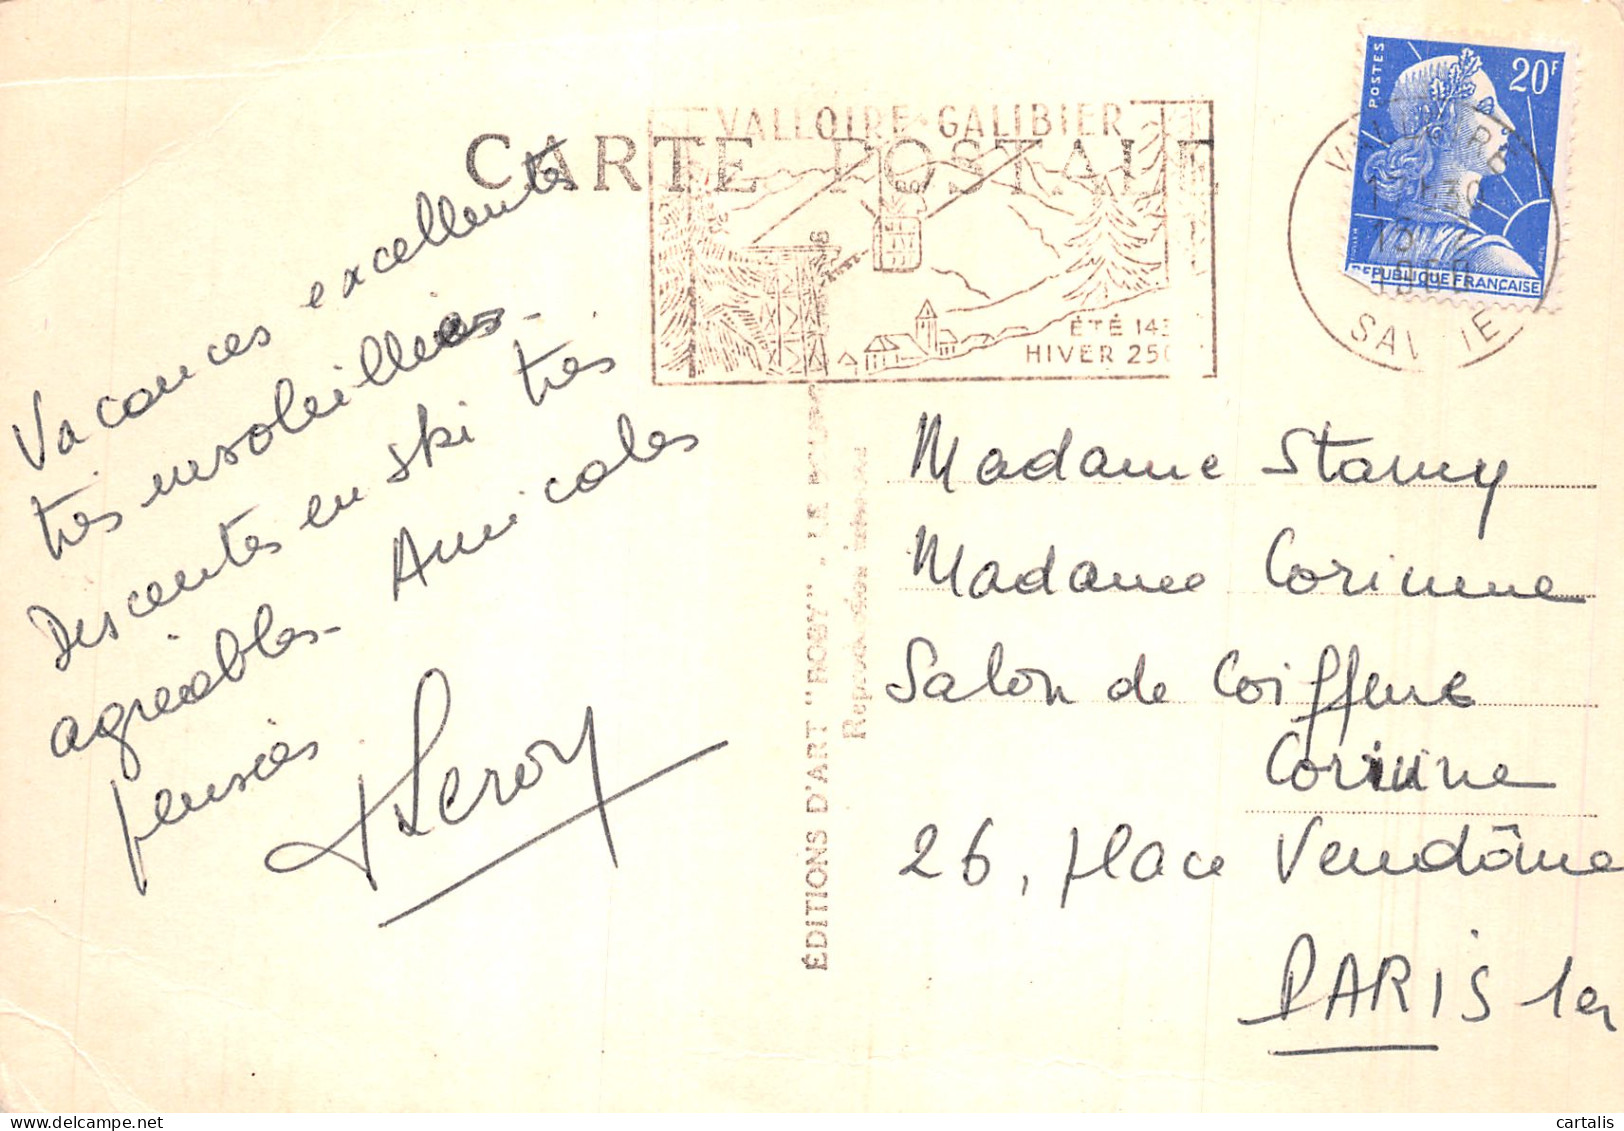 CARTE POSTALE
VALLOIRE-GALIBIER
ÉTÉ 143
HIVER 250
POSTES
20F
REPUBLIQUE FRANÇAISE
VALLOIRE
SAVOIE
Vacances excellentes
très ensoleillées-
Descentes en ski très
agréables- Amicales
pensées
Leroy
ÉDITIONS D'ART "ROBY", LE
Reproduction
Madame Stamy
Madame Corinne
Salon de Coiffure
Corinne
26, place Vendôme
PARIS 1er
cartalis